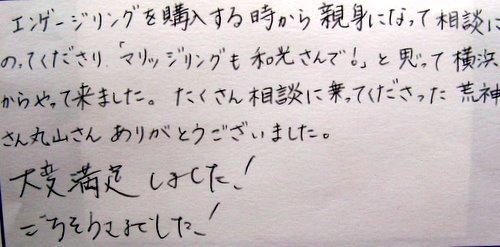 エンゲージリングを購入する時から親身になって相談に
のってくださり、「マリッジリングも和光さんで!」と思って横浜
からやって来ました。たくさん相談に乗ってくださった荒神
さん丸山さんありがとうございました。
大変満足しました!
ごちそうさまでした!